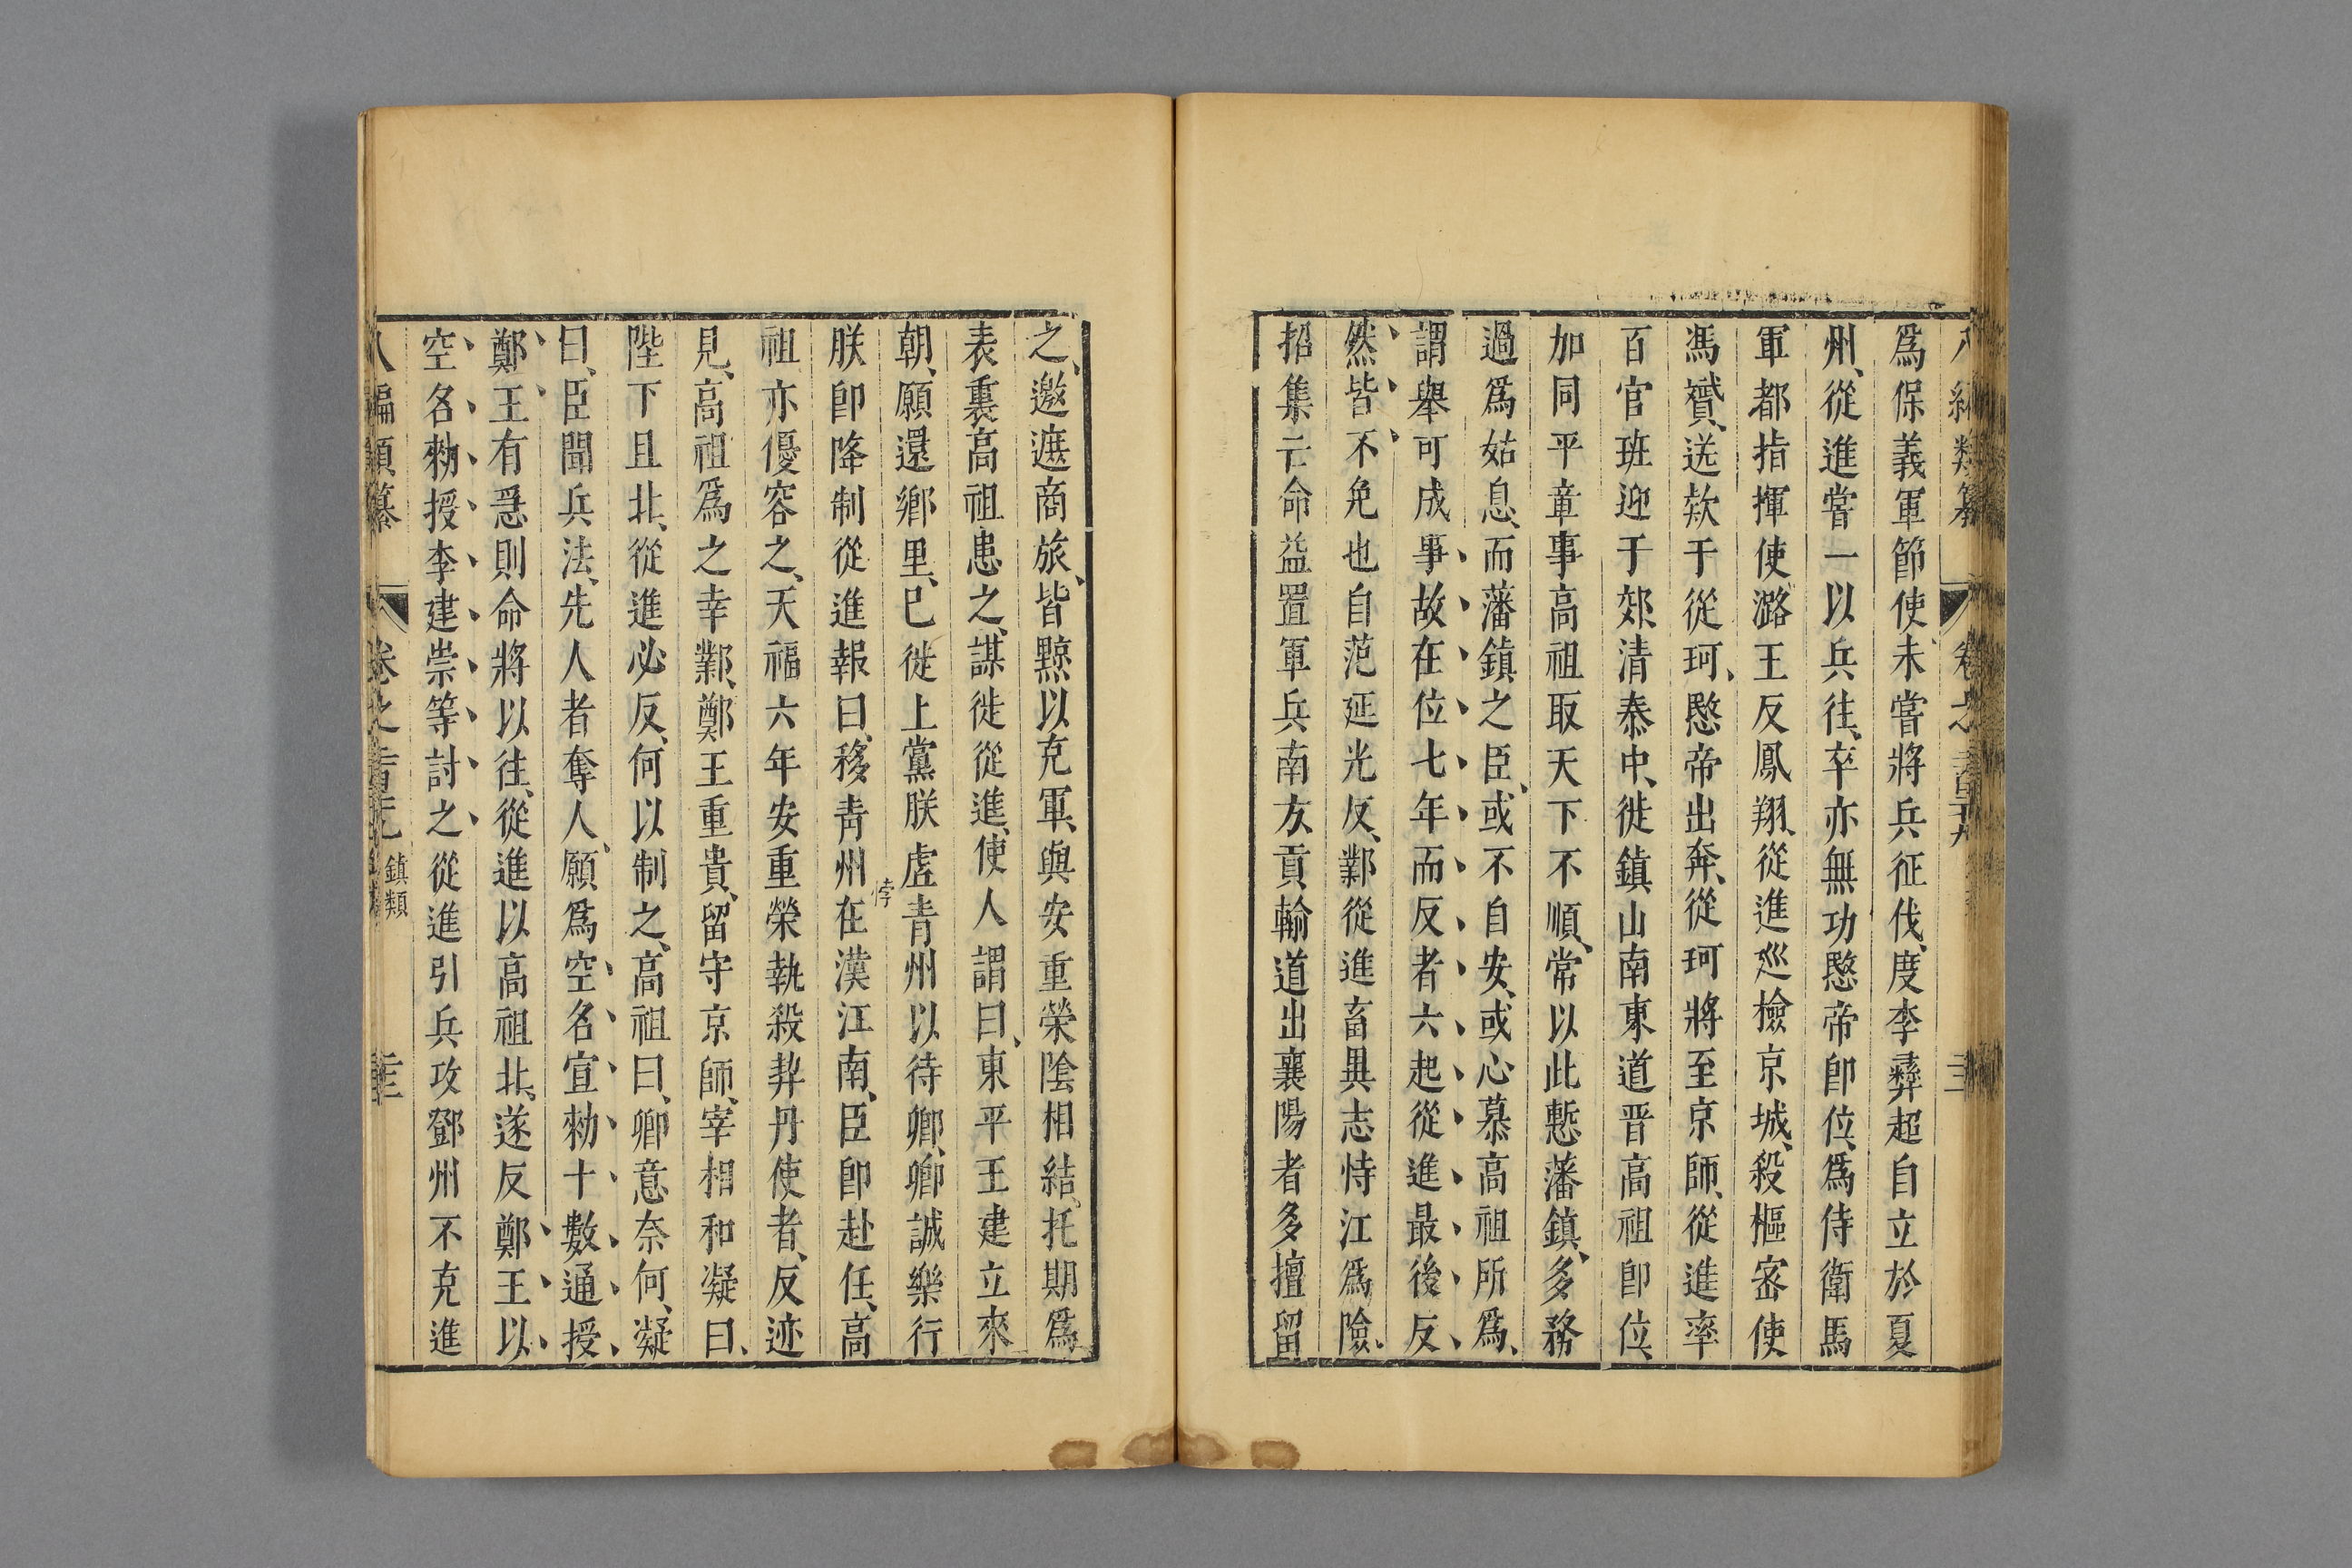 八編類纂 卷之
爲保義軍節使未嘗將兵征伐度李彝超自立於夏
州從進嘗一以兵往卒亦無功愍帝卽位爲侍衛馬
軍都指揮使潞王反鳳翔從進巡檢京城殺樞密使
馮贇送欵于從珂愍帝出奔從珂將至京師從進率
百官班迎于郊清泰中徙鎮山南東道晋高祖卽位
加同平章事高祖取天下不順常以此慙藩鎮多務
過爲姑息而藩鎮之臣或不自安或心慕高祖所爲
謂舉可成事故在位七年而反者六起從進最後反
然皆不免也自范延光反鄴從進畜異志恃江爲險
招集亡命益置軍兵南方貢輸道出襄陽者多擅留
之邀遮商旅皆黥以充軍與安重榮陰相結托期爲
表裏高祖患之謀徙從進使人謂曰東平王建立來
朝願還鄉里已徙上黨朕虛青州以待卿卿誠樂行
朕卽降制從進報曰移靑州在漢江南臣卽赴任高
悖
祖亦優容之天福六年安重榮執殺契丹使者反迹
見高祖爲之幸鄴鄭王重貴留守京師宰相和凝曰
陛下且北從進必反何以制之高祖曰卿意奈何凝
曰臣聞兵法先人者奪人願爲空名宣勑十數通授
鄭王有急則命將以往從進以高祖北遂反鄭王以
空名勑授李建崇等討之從進引兵攻鄧州不克進
八編類纂 卷之 鎮類